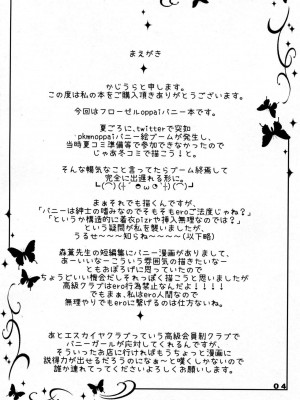 まえがき
かじうらと申します。
この度は私の本をご購入頂きありがとうございます。
今回はフローゼルoppaiバニー本です。
夏ごろに、twitterで突如
pkmnoppaiバニー絵ブームが発生し、
当時夏コミ準備等で参加できなかったので
じゃあ冬コミで描こう！と。
そんな暢気なこと言ってたらブーム終焉して
完全に出遅れる形に。
まぁそれでも描くんですが、
「バニーは紳士の嗜みなのでそもそもeroご法度じゃね？」
「というか構造的に着衣pizrで挿入無理なのでは？」
という疑問が私を襲いましたが、
うるせ～～～知らね～～～～(以下略)
森薫先生の短編集にバニー漫画がありまして、
あーいいなーこういう雰囲気の描きたいなー
ともおぼろげに思っていたので
ちょうどいい機会だしそれっぽく描こうと思いましたが
高級クラブはero行為禁止なんだよ！！！！！！
でもまぁ、私はero人間なので
無理やりでもeroに繋げるのは仕方ないね。
あとエスカイヤクラブっていう高級会員制クラブで
バニーガールが応対してくれるんですが、
そういったお店に行ければもうちょっと漫画に
説得力が出せるだろうのになぁ～と嘆くしかないので
誰か連れてってくださいよろしくお願いします。
04